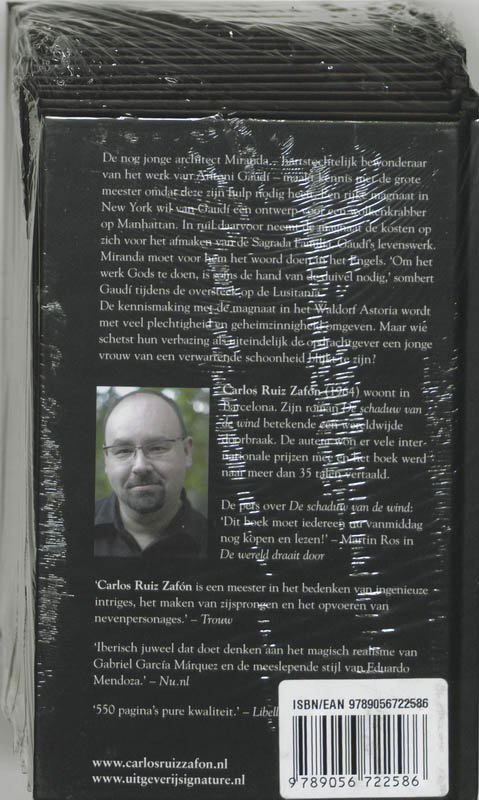 De nog jonge architect Miranda – hartstochtelijk bewonderaar
van het werk van Antoni Gaudí – maakt kennis met de grote
meester omdat deze zijn hulp nodig heeft. Een rijke magnaat in
New York wil van Gaudí een ontwerp voor een wolkenkrabber
op Manhattan. In ruil daarvoor neemt de magnaat de kosten op
zich voor het afmaken van de Sagrada Família, Gaudí's levenswerk.
Miranda moet voor hem het woord doen in het Engels. 'Om het
werk Gods te doen, is soms de hand van de duivel nodig,' sombert
Gaudí tijdens de oversteek op de Lusitania.
De kennismaking met de magnaat in het Waldorf Astoria wordt
met veel plechtigheid en geheimzinnigheid omgeven. Maar wie
schetst hun verbazing als uiteindelijk de opdrachtgever een jonge
vrouw van een verwarrende schoonheid blijkt te zijn?
Carlos Ruiz Zafón (1964) woont in
Barcelona. Zijn roman De schaduw van
de wind betekende een wereldwijde
doorbraak. De auteur won er vele inter-
nationale prijzen mee en het boek werd
naar meer dan 35 talen vertaald.
De pers over De schaduw van de wind:
'Dit boek moet iedereen nu vanmiddag
nog kopen en lezen!' – Martin Ros in
De wereld draait door
'Carlos Ruiz Zafón is een meester in het bedenken van ingenieuze
intriges, het maken van zijsprongen en het opvoeren van
nevenpersonages.' – Trouw
'Iberisch juweel dat doet denken aan het magisch realisme van
Gabriel García Márquez en de meeslepende stijl van Eduardo
Mendoza.' – Nu.nl
'550 pagina's pure kwaliteit.' – Libell
www.carlosruizzafon.nl
www.uitgeverijsignature.nl
ISBN/EAN 9789056722586
9 789056 722586